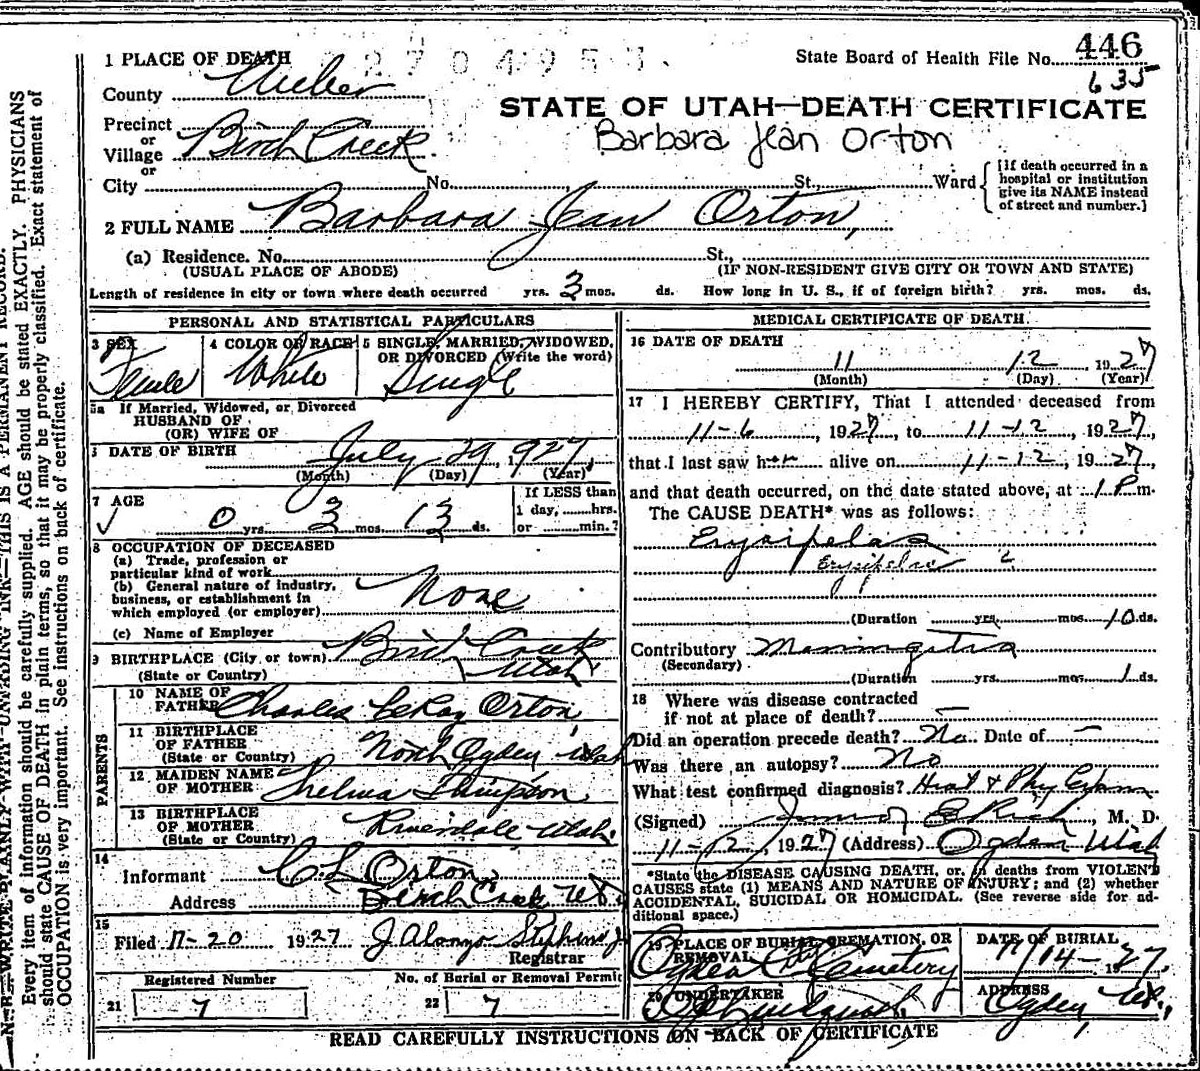 2704957
State Board of Health File No. 446
635
1 PLACE OF DEATH
County Weber
STATE OF UTAH—DEATH CERTIFICATE
Barbara Jean Orton
Precinct
or
Village Birch Creek
or
City No. St., Ward
[If death occurred in a
hospital or institution
give its NAME instead
of street and number.]
2 FULL NAME Barbara Jean Orton,
(a) Residence. No. St.,
(USUAL PLACE OF ABODE) (IF NON-RESIDENT GIVE CITY OR TOWN AND STATE)
Length of residence in city or town where death occurred yrs. 3 mos. ds. How long in U. S., if of foreign birth? yrs. mos. ds.
PERSONAL AND STATISTICAL PARTICULARS
3 SEX 4 COLOR OR RACE 5 SINGLE, MARRIED, WIDOWED,
OR DIVORCED (Write the word)
Female White Single
5a If Married, Widowed, or Divorced
HUSBAND OF
(OR) WIFE OF
DATE OF BIRTH July 29, 1927,
(Month) (Day) (Year)
7 AGE
0 yrs. 3 mos. 13 ds.
If LESS than
1 day, hrs.
or min.?
8 OCCUPATION OF DECEASED
(a) Trade, profession or
particular kind of work
(b) General nature of industry,
business, or establishment in
which employed (or employer) None
(c) Name of Employer
9 BIRTHPLACE (City or town) Birch Creek
(State or Country) Utah
PARENTS
10 NAME OF
FATHER Charles LeRoy Orton,
11 BIRTHPLACE
OF FATHER
(State or Country) North Ogden Utah
12 MAIDEN NAME
OF MOTHER Thelma Thimpson
13 BIRTHPLACE
OF MOTHER
(State or Country) Riverdale Utah.
14
Informant C L Orton,
Address Birch Creek Ut
15
Filed 11-20 1927 J Alonzo Stephens Jr
Registrar
Registered Number No. of Burial or Removal Permit
21 7 22 7
MEDICAL CERTIFICATE OF DEATH
16 DATE OF DEATH
11 12, 1927
(Month) (Day) (Year)
17 I HEREBY CERTIFY, That I attended deceased from
11-6, 1927, to 11-12, 1927,
that I last saw her alive on 11-12, 1927,
and that death occurred, on the date stated above, at 1 P m.
The CAUSE DEATH* was as follows:
Erysipelas
Erysipelas
(Duration yrs. mos. 10 ds.
Contributory Meningitis
(Secondary)
(Duration yrs. mos. 1 ds.
18 Where was disease contracted
if not at place of death? —
Did an operation precede death? No Date of —
Was there an autopsy? No
What test confirmed diagnosis? Hist & Phy Exam
(Signed) E Rich, M. D.
11-12, 1927 (Address) Ogden Utah
*State the DISEASE CAUSING DEATH, or, in deaths from VIOLENT
CAUSES state (1) MEANS AND NATURE OF INJURY; and (2) whether
ACCIDENTAL, SUICIDAL OR HOMICIDAL. (See reverse side for ad-
ditional space.)
19 PLACE OF BURIAL, CREMATION, OR
REMOVAL
Ogden City Cemetery
DATE OF BURIAL
11/14-1927.
20 UNDERTAKER
ADDRESS
Ogden, Ut.,
READ CAREFULLY INSTRUCTIONS ON BACK OF CERTIFICATE
N. B.—WRITE PLAINLY WITH UNFADING INK—THIS IS A PERMANENT RECORD.
Every item of information should be carefully supplied. AGE should be stated EXACTLY. PHYSICIANS
should state CAUSE OF DEATH in plain terms, so that it may be properly classified. Exact statement of
OCCUPATION is very important. See instructions on back of certificate.